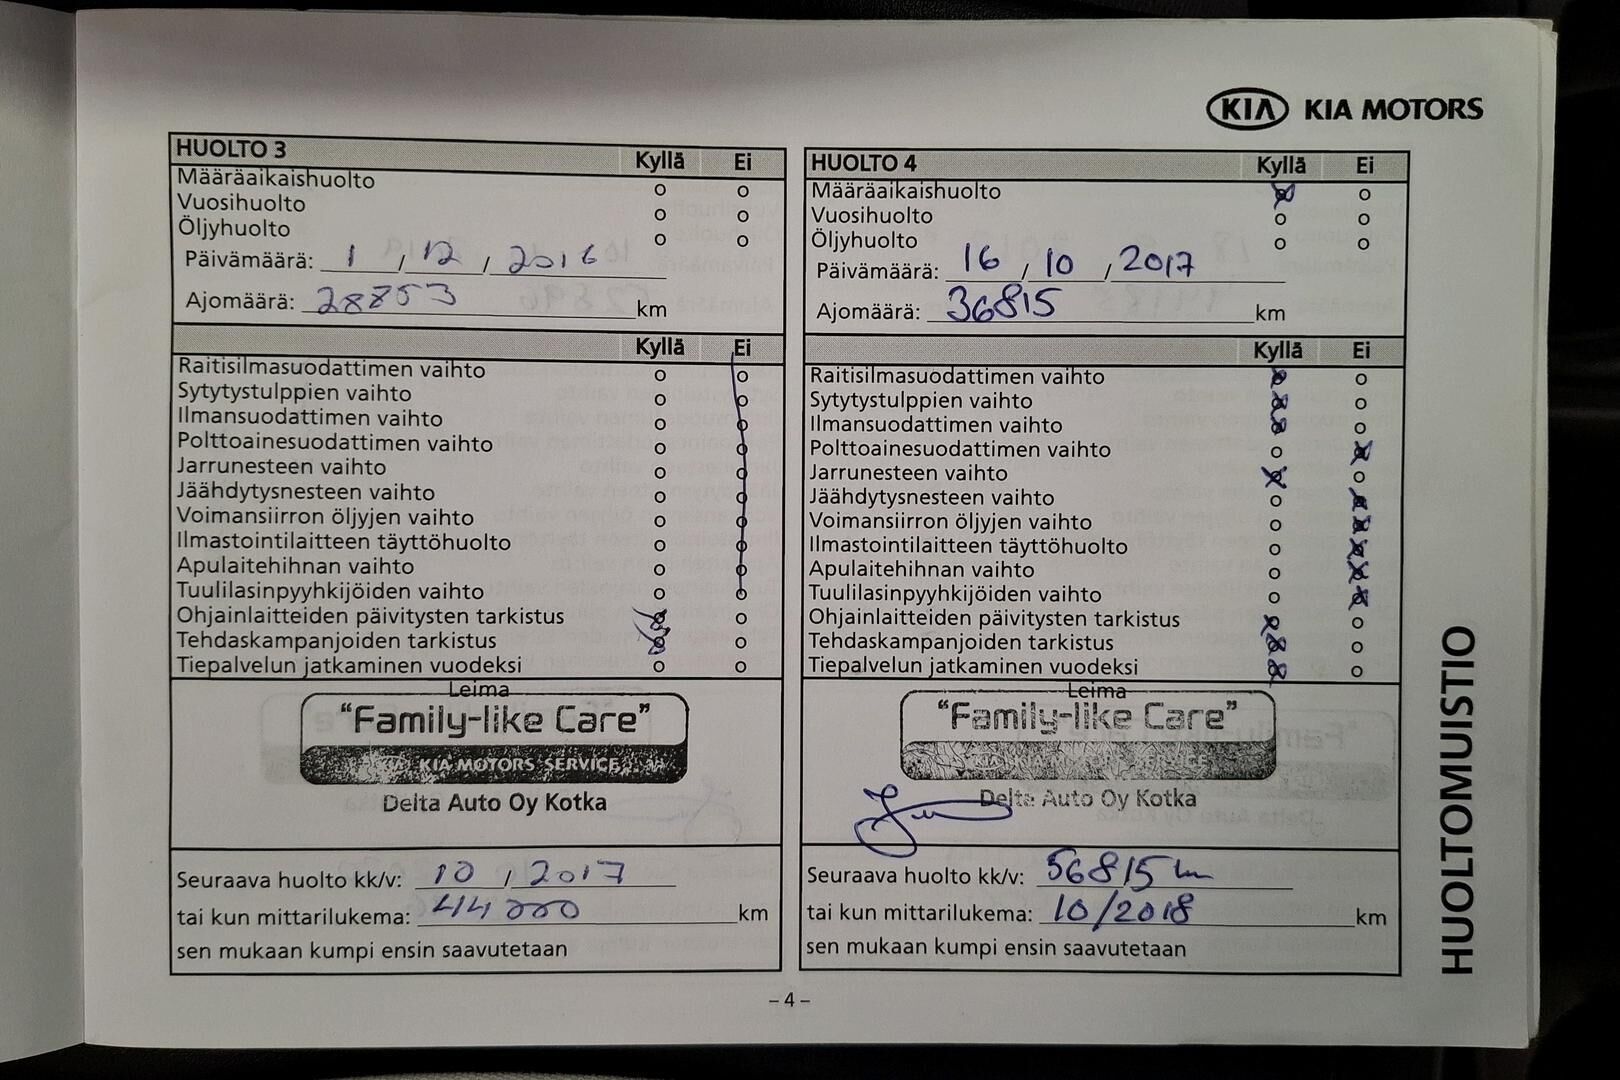 KIA KIA MOTORS
HUOLTO 3 Kyllä Ei
Määräaikaishuolto
Vuosihuolto
Öljyhuolto
Päivämäärä: 1 / 12 / 2016
Ajomäärä: 28853 km
Kyllä Ei
Raitisilmasuodattimen vaihto
Sytytystulppien vaihto
Ilmansuodattimen vaihto
Polttoainesuodattimen vaihto
Jarrunesteen vaihto
Jäähdytysnesteen vaihto
Voimansiirron öljyjen vaihto
Ilmastointilaitteen täyttöhuolto
Apulaitehihnan vaihto
Tuulilasinpyyhkijöiden vaihto
Ohjainlaitteiden päivitysten tarkistus
Tehdaskampanjoiden tarkistus
Tiepalvelun jatkaminen vuodeksi
Leima
"Family-like Care"
KIA MOTORS SERVICE
Delta Auto Oy Kotka
Seuraava huolto kk/v: 10 / 2017
tai kun mittarilukema: 44000 km
sen mukaan kumpi ensin saavutetaan
HUOLTO 4 Kyllä Ei
Määräaikaishuolto
Vuosihuolto
Öljyhuolto
Päivämäärä: 16 / 10 / 2017
Ajomäärä: 36815 km
Kyllä Ei
Raitisilmasuodattimen vaihto
Sytytystulppien vaihto
Ilmansuodattimen vaihto
Polttoainesuodattimen vaihto
Jarrunesteen vaihto
Jäähdytysnesteen vaihto
Voimansiirron öljyjen vaihto
Ilmastointilaitteen täyttöhuolto
Apulaitehihnan vaihto
Tuulilasinpyyhkijöiden vaihto
Ohjainlaitteiden päivitysten tarkistus
Tehdaskampanjoiden tarkistus
Tiepalvelun jatkaminen vuodeksi
Leima
"Family-like Care"
KIA KIA MOTORS SERVICE
Delta Auto Oy Kotka
Seuraava huolto kk/v: 56815 km
tai kun mittarilukema: 10/2018 km
sen mukaan kumpi ensin saavutetaan
HUOLTOMUISTIO
– 4 –